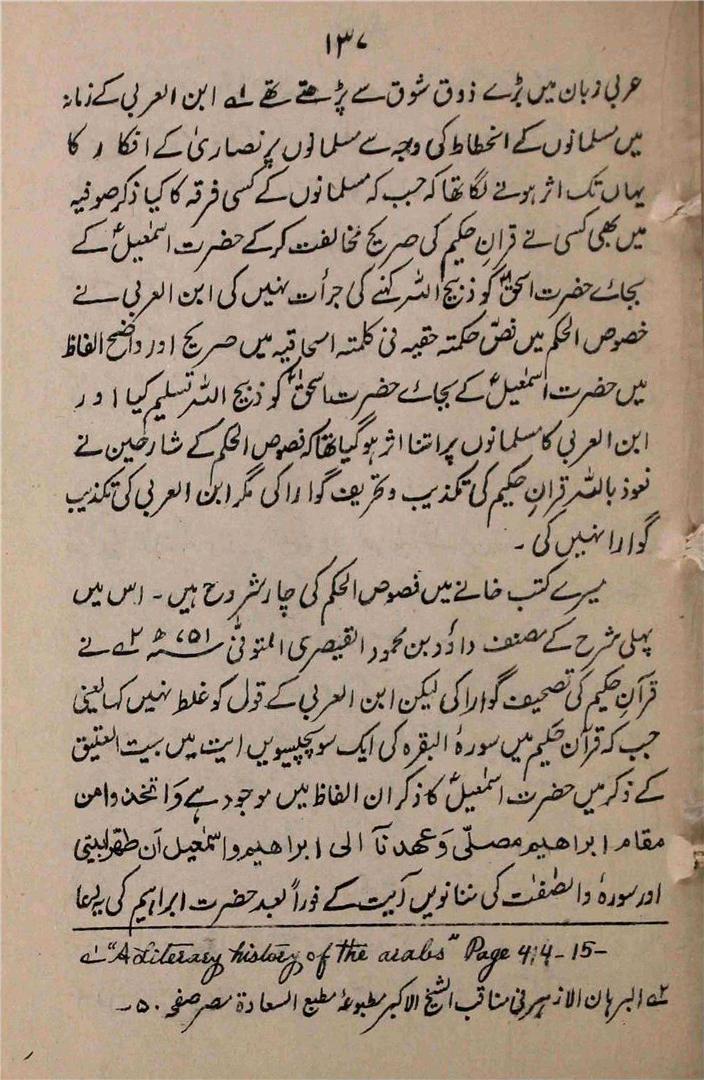 ۱۳۷
عربی زبان میں بڑے ذوق شوق سے پڑھتے تھے ۱ے ابن العربی کے زمانہ
میں مسلمانوں کے انحطاط کی وجہ سے مسلمانوں پر نصاریٰ کے افکار کا
یہاں تک اثر ہونے لگا تھا کہ جب کہ مسلمانوں کے کسی فرقہ کا کیا ذکر صوفیہ
میں بھی کسی نے قرانِ حکیم کی صریح مخالفت کر کے حضرت اسمٰعیلؑ کے
بجائے حضرت اسحٰقؑ کو ذبیح اللہ کہنے کی جرأت نہیں کی ابن العربی نے
خصوص الحکم میں نصّ حکمتہ حقیہ فی کلمتہ اسحاقیہ میں صریح اور واضح الفاظ
میں حضرت اسمٰعیلؑ کے بجائے حضرت اسحٰقؑ کو ذبیح اللہ تسلیم کیا اور
ابن العربی کا مسلمانوں پر اتنا اثر ہو گیا تھا کہ فصوص الحکم کے شارحین نے
نعوذ باللہ قرانِ حکیم کی تکذیب و تحریف گوارا کی مگر ابن العربی کی تکذیب
گوارا نہیں کی ۔
میرے کتب خانے میں فصوص الحکم کی چار شروح ہیں ۔ اس میں
پہلی شرح کے مصنف داؤد بن محمود القیصری المتوفیٰ ۷۵۱ھ ۲ے نے
قرآنِ حکیم کی تصحیف گوارا کی لیکن ابن العربی کے قول کو غلط نہیں کہا یعنی
جب کہ قرآن حکیم میں سورۂ البقرہ کی ایک سو پچیسویں ایت میں بیت العتیق
کے ذکر میں حضرت اسمٰعیلؑ کا ذکر ان الفاظ میں موجود ہے وَاتخذوامن
مقام ابراھیم مصلّی وَعھدنآ الی ابراھیم واسمٰعیل اَن طھرابیتی
اور سورۂ والصّٰفٰت کی ننانویں آیت کے فوراً بعد حضرت ابراہیم کی یہ دعا
۱ے "A Literary history of the arabs" Page 414-15-
۲ے البرہان الازہر فی مناقب الشیخ الاکبر مطبوعۂ مطبع السعادۃ مصر صفحہ ۵۰۔